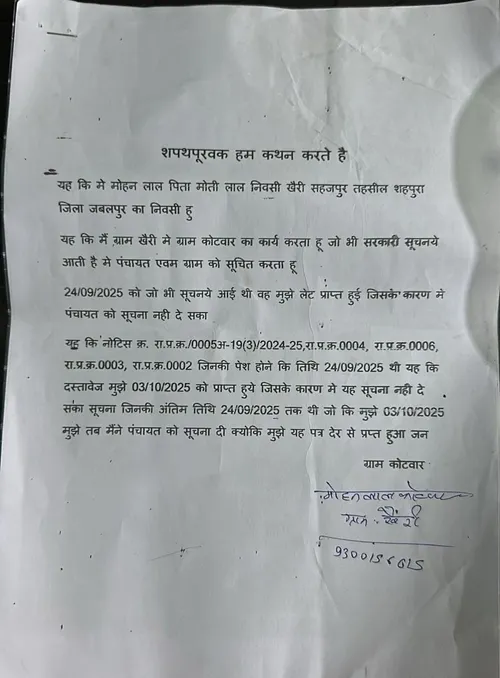 शपथपूरवक हम कथन करते है
यह कि मे मोहन लाल पिता मोती लाल निवसी खैरी सहजपुर तहसील शहपुरा
जिला जबलपुर का निवसी हु
यह कि मैं ग्राम खैरी मे ग्राम कोटवार का कार्य करता हू जो भी सरकारी सूचनये
आती है मे पंचायत एवम ग्राम को सुचित करता हू
24/09/2025 को जो भी सूचनये आई थी वह मुझे लेट प्राप्त हुई जिसके कारण मे
पंचायत को सूचना नही दे सका
यह कि नोटिस क्र. रा.प्र.क्र./0005अ-19(3)/2024-25,रा.प्र.क्र.0004, रा.प्र.क्र.0006,
रा.प्र.क्र.0003, रा.प्र.क्र.0002 जिनकी पेश होने कि तिथि 24/09/2025 थी यह कि
दस्तावेज मुझे 03/10/2025 को प्राप्त हुये जिसके कारण मे यह सूचना नही दे
सका सूचना जिनकी अंतिम तिथि 24/09/2025 तक थी जो कि मुझे 03/10/2025
मुझे तब मैंने पंचायत को सूचना दी क्योकि मुझे यह पत्र देर से प्रप्त हुआ जन
ग्राम कोटवार
मोहनलाल कोटवार
ग्राम : खैरी